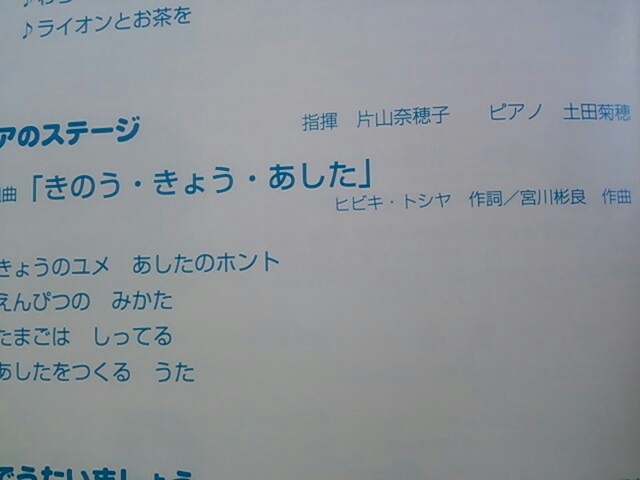 ♪ライオンとお茶を
アのステージ
指揮 片山奈穂子 ピアノ 土田菊穂
曲「きのう・きょう・あした」
ヒビキ・トシヤ 作詞／宮川彬良 作曲
きょうのユメ あしたのホント
えんぴつの みかた
たまごは しってる
あしたをつくる うた
でうたいましょう